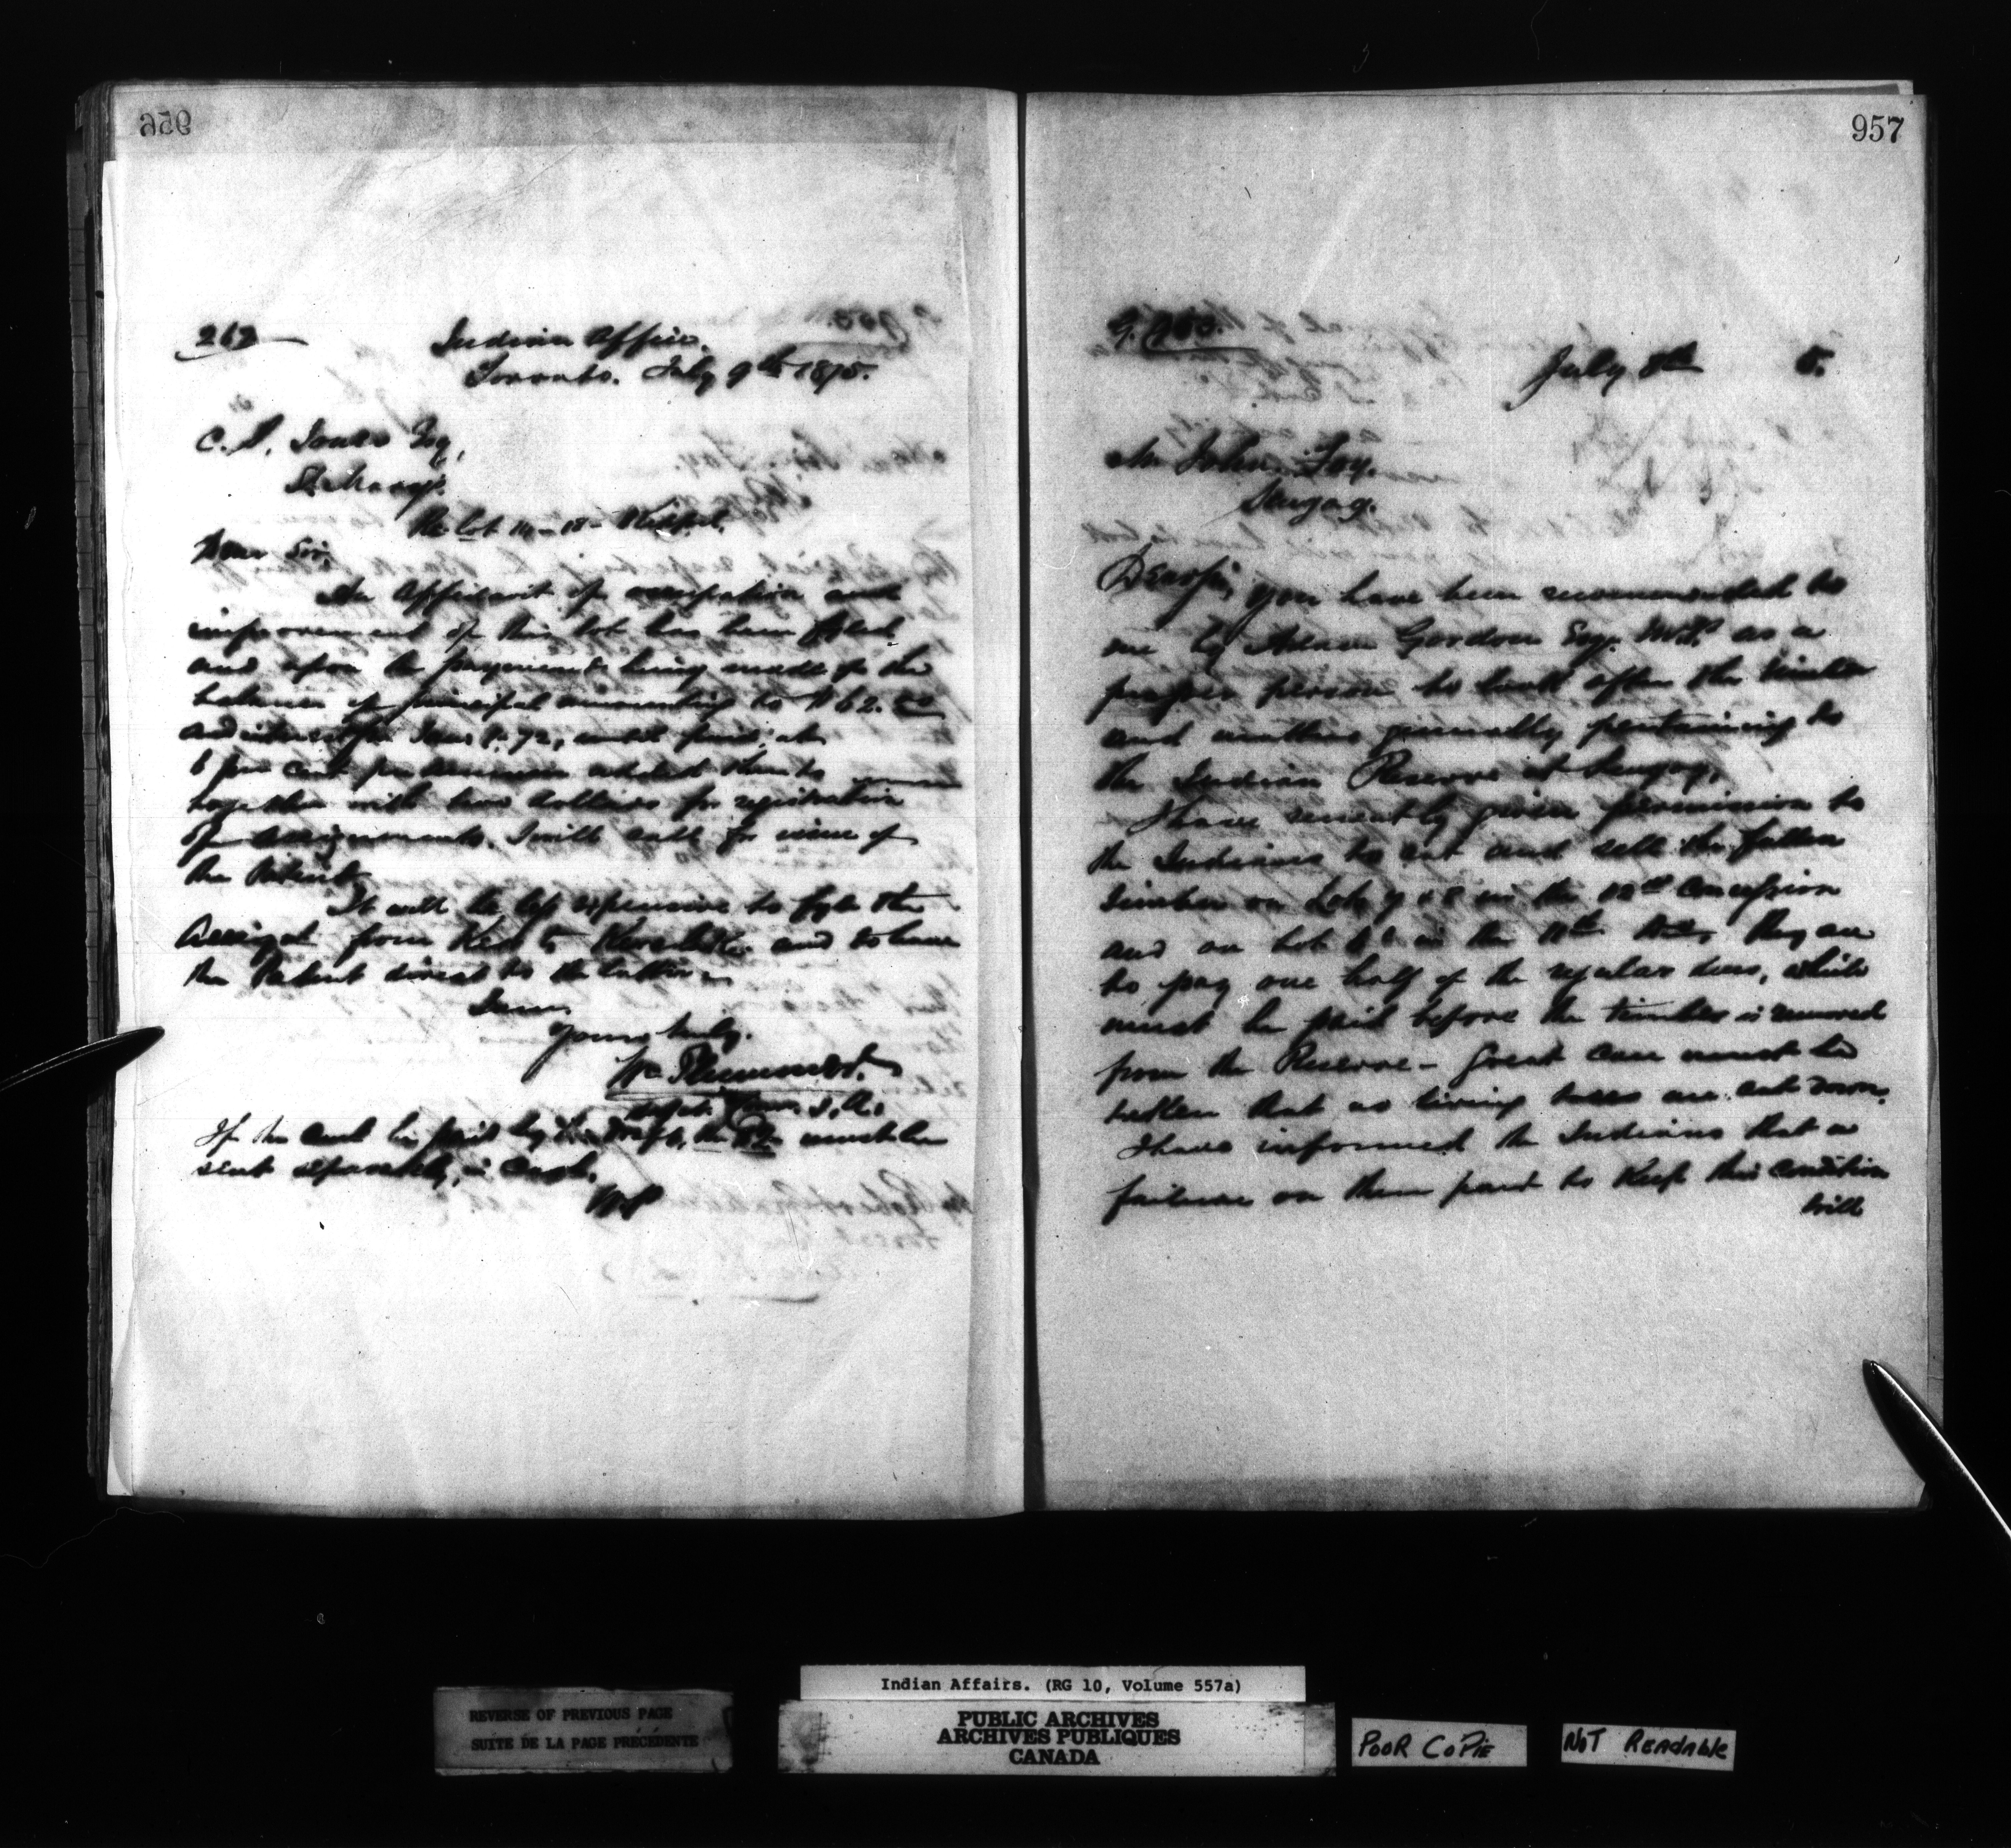 956
267
Indian Office.
Toronto. July 9th 1875.
C. Jones Esq,
Re Lot 14 - 18 -
Dear Sir,
An Affidavit of occupation and
improvement of this lot has been filed
and upon payment being made of the
balance of principal amounting to $62.
and interest from Jan 8. 72, at
6 per cent per annum
together with two dollars for registration
of assignments. I will ask for issue of
the Patent
It will be less expensive to fyle the
Assigt from Kerr to and to have
the Patent direct to the latter
I am
Yours truly.
Wm Plummer
Supt. Comr. I. A.
If the can be paid by Draft, the $2 must be
sent separately, in Cash.
WP
957
July 8th 5.
Mr John Foy.
Scugog.
Dear Sir, You have been recommended to
me by Adam Gordon Esq. M.P. as a
proper person to look after the timber
and matters generally pertaining to
the Indian Reserve at Scugog.
I have recently given permission to
the Indians to cut and sell the fallen
timber on Lots 7 & 8 in the 10th Concession
and on Lot 6 in the They are
to pay one half of the regular dues, which
must be paid before the timber is removed
from the Reserve - Great care must be
taken that no living trees are cut down.
I have informed the Indians that a
failure on their part to keep this condition
will
Indian Affairs. (RG 10, Volume 557a)
REVERSE OF PREVIOUS PAGE
SUITE DE LA PAGE PRÉCÉDENTE
PUBLIC ARCHIVES
ARCHIVES PUBLIQUES
CANADA
POOR COPIE
NOT READABLE